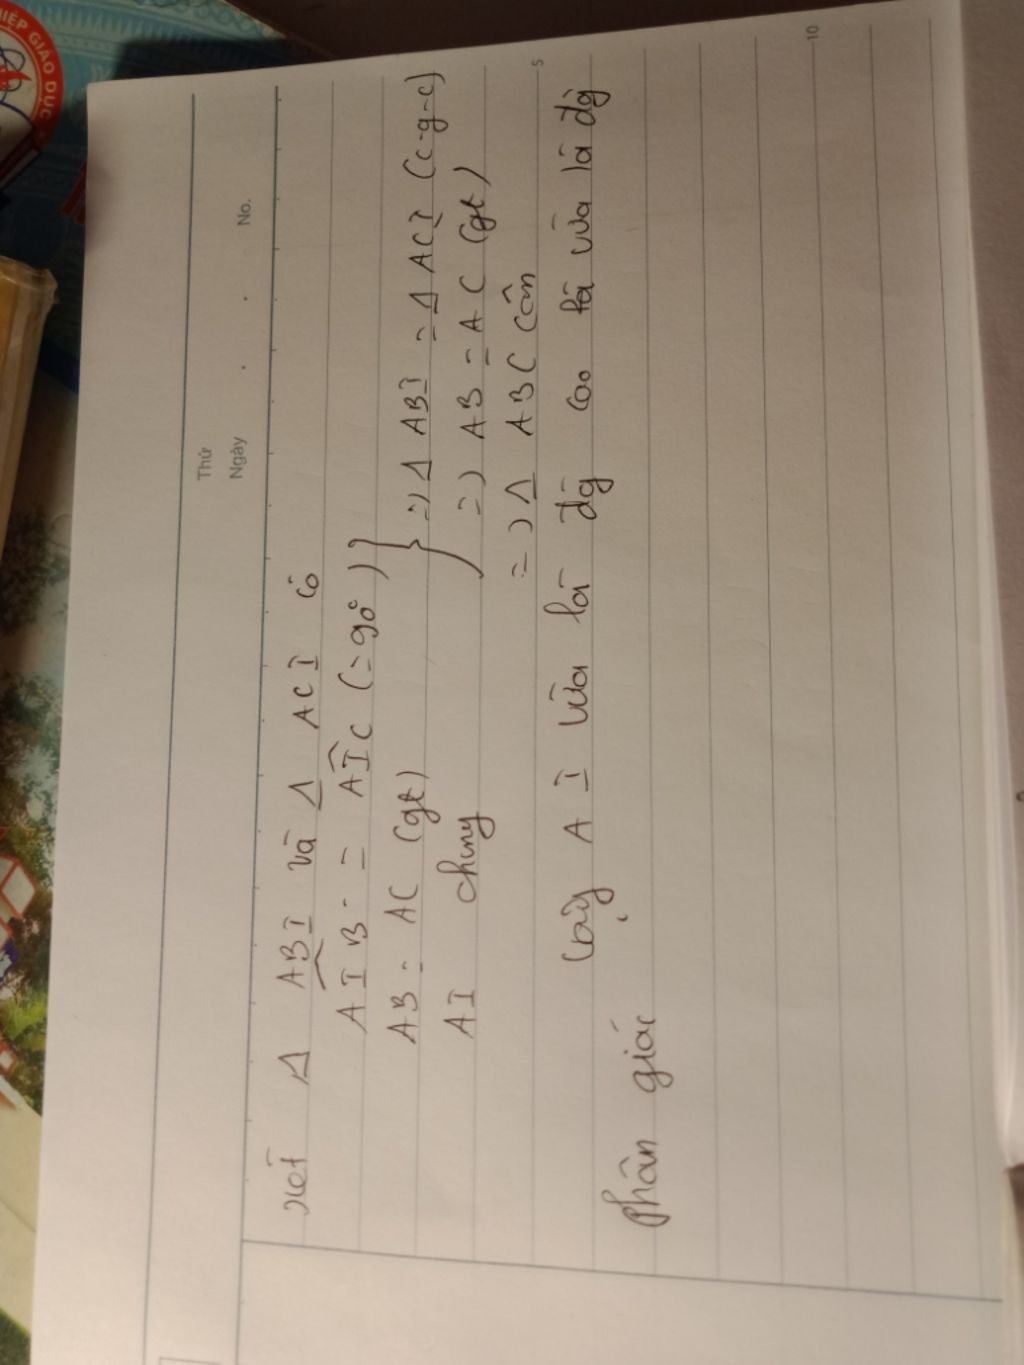 HIỆP GIÁO DỤC
Thứ
Ngày . . No.
xét Δ ABI và Δ ACI có
AIB = AIC (=90°)
AB = AC (gt)
AI chung
=> Δ ABI = Δ ACI (c-g-c)
=> AB = AC (gt)
=> Δ ABC cân
5
AI vừa là đg cao vừa là đg
phân giác
10